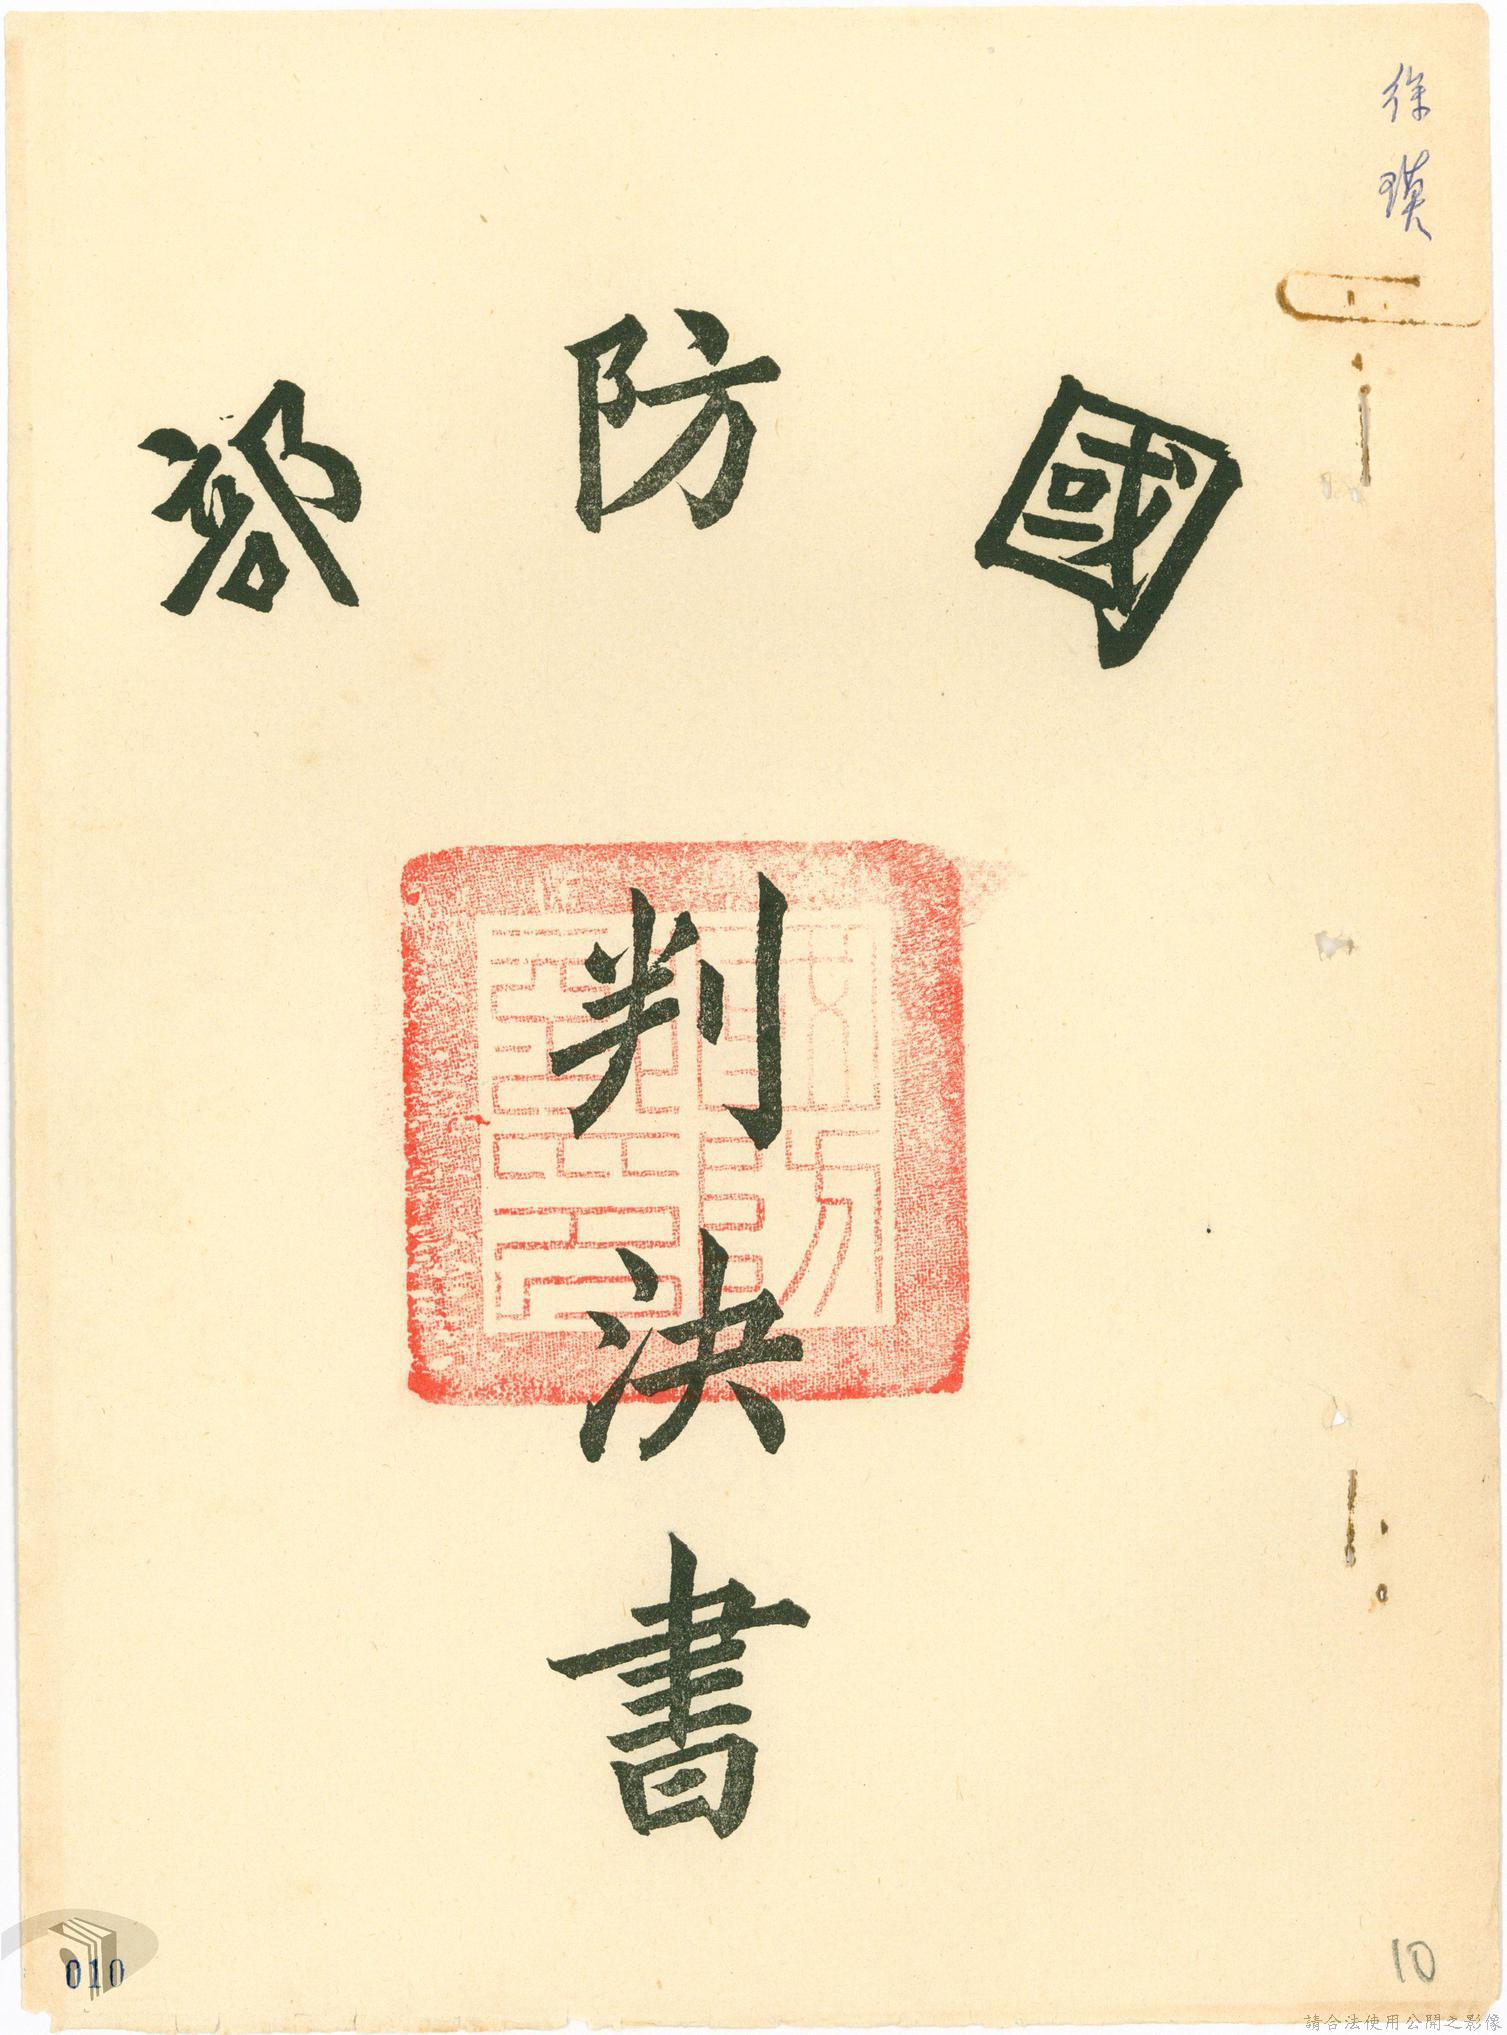 徐瑛
國防部
判決書
010
10
請合法使用公開之影像